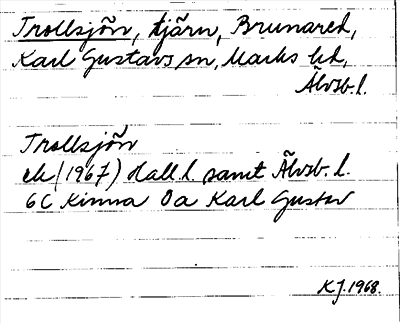 Trollsjön, tjärn, Brunared,
Karl Gustavs sn, Marks hd,
Älvsb. l.
Trollsjön
ek (1967) Hall. l. samt Älvsb. l.
6C Kinna 0a Karl Gustav
KJ. 1968.